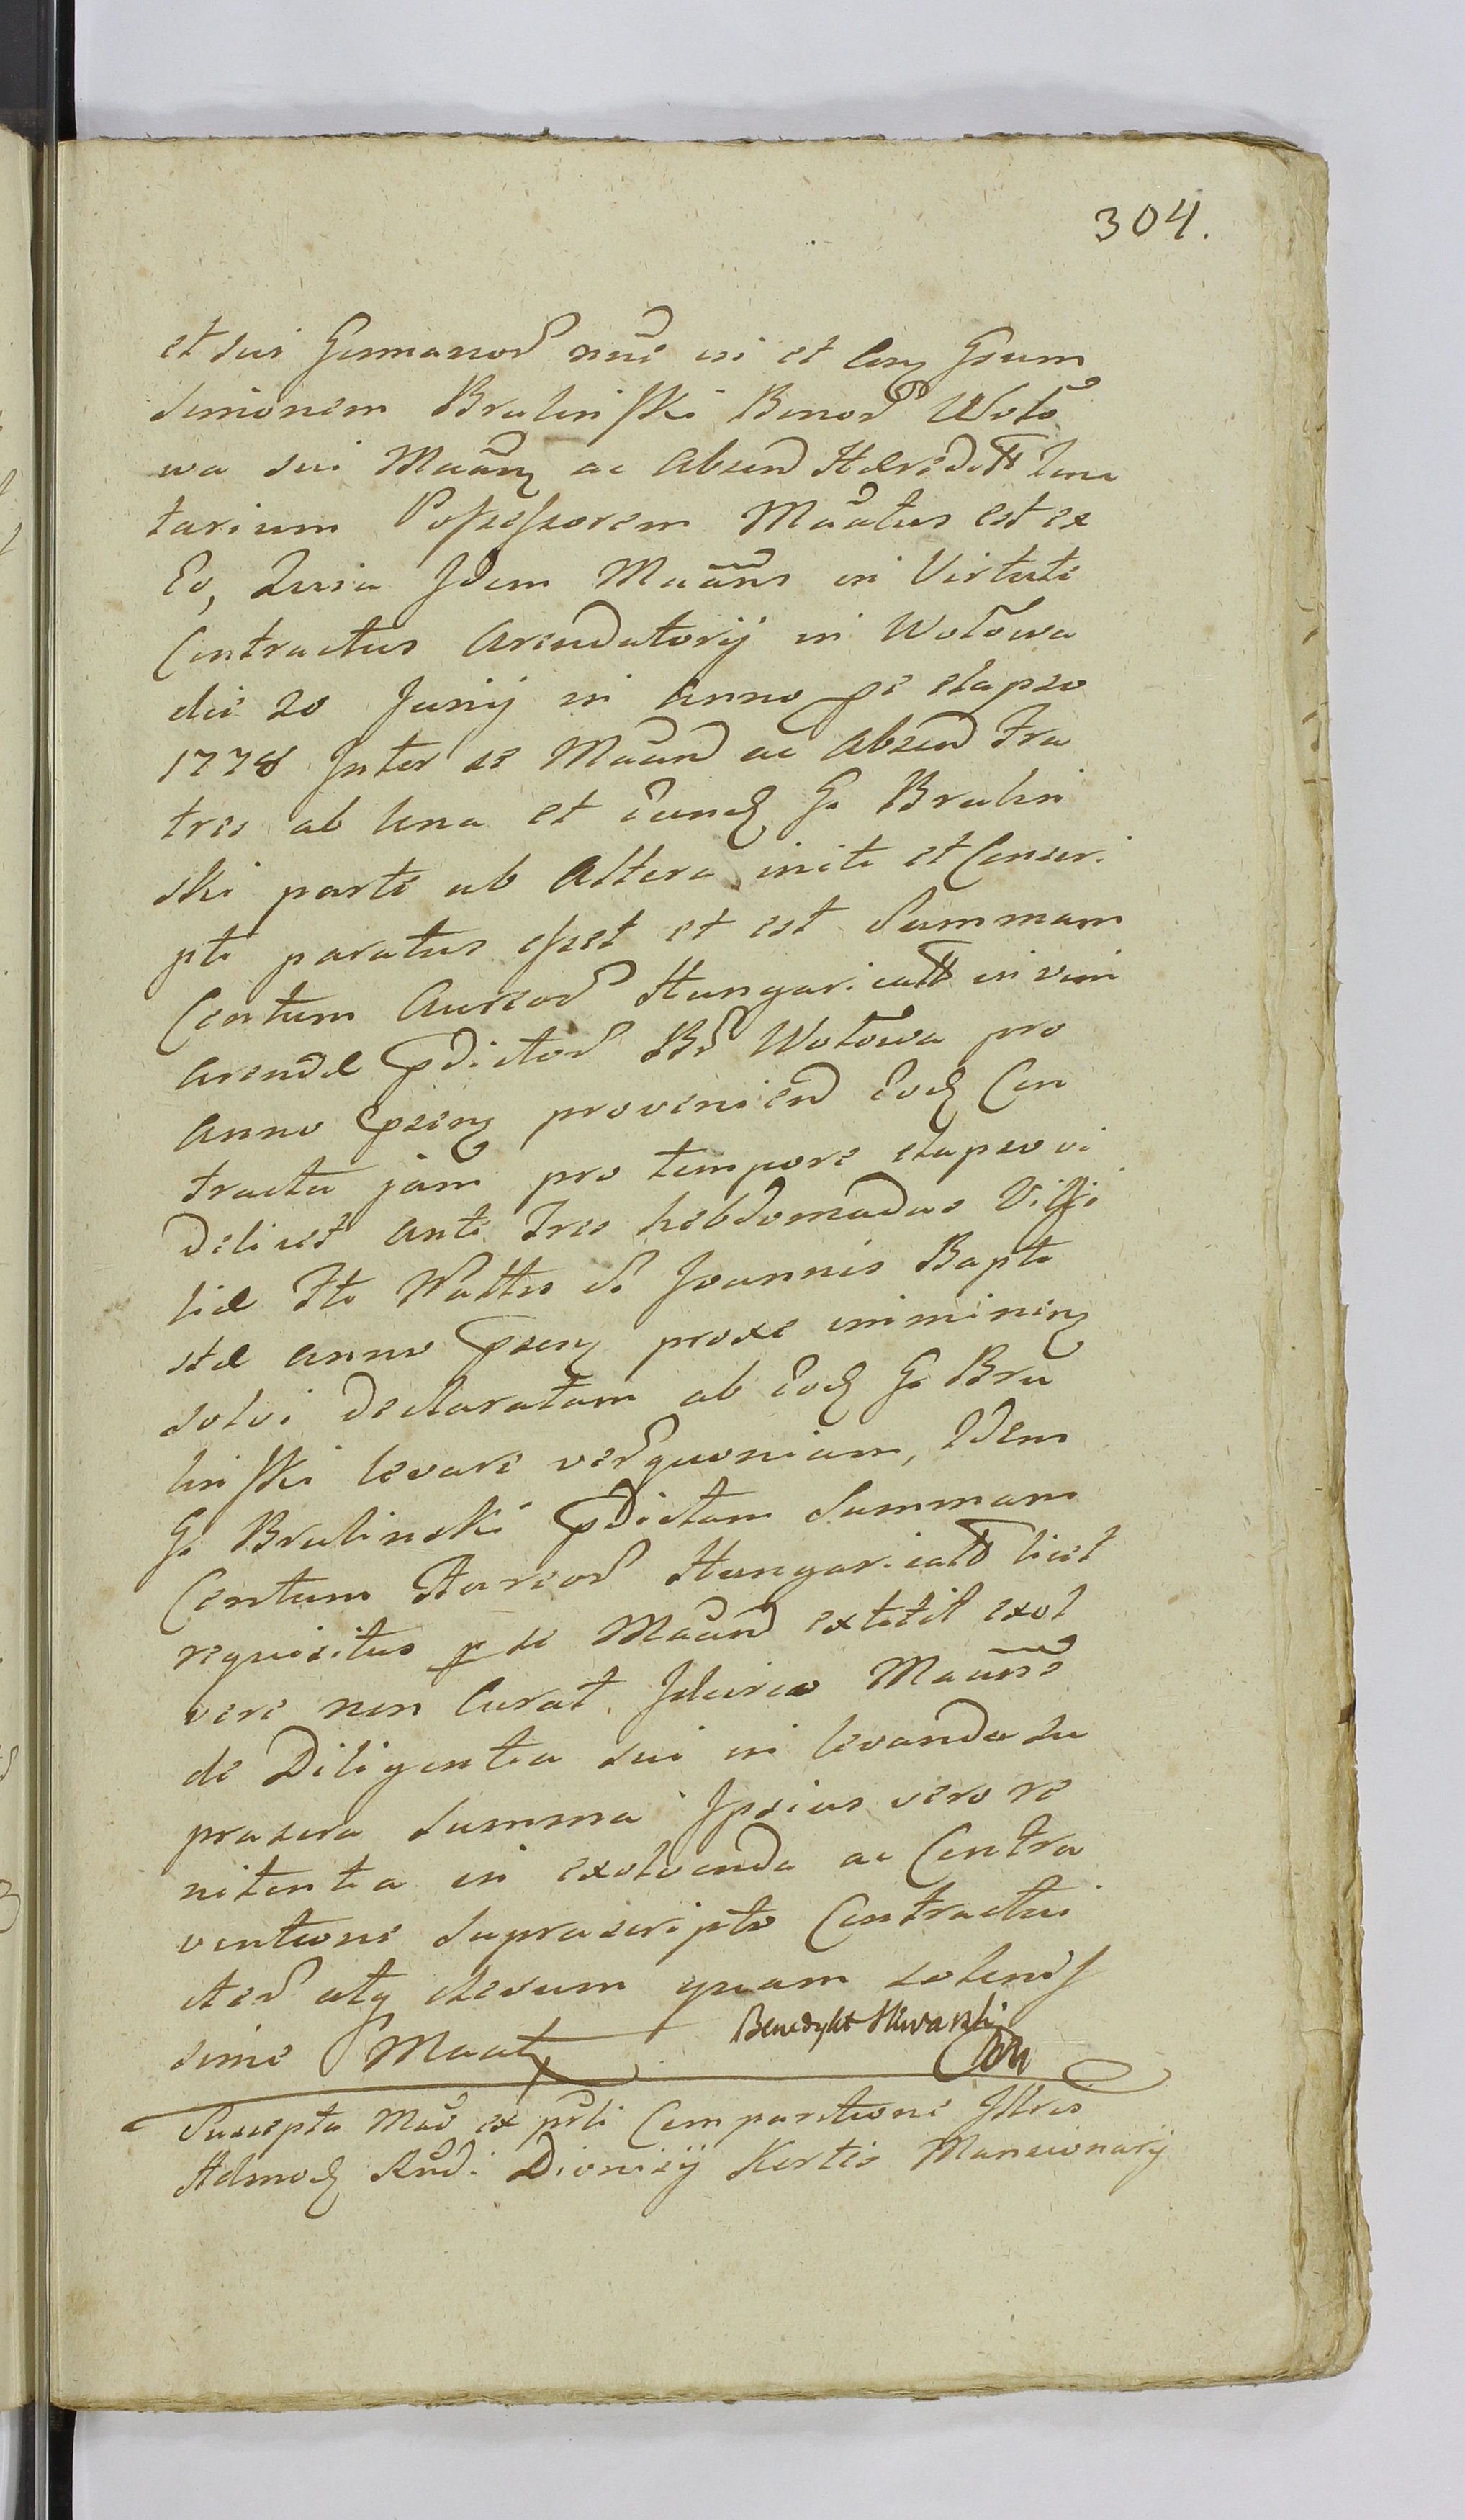 304.
et sui Germanor nne in et Con Grum
Simonem Brulinsski Bonor Woto
wa sui Maan ac Absen Haeredtt tenu
tarium Possessorem Maatus est ex
Eo, Quia Idem Maans in Virtute
Contractus Arendatorij in Wotowa
die 20 Junij in Anno pe elapso
1778 Inter se Maan ac Absen Fra
tres ab Una et eund G. Brulin
ski parte ab Altera inite et Conscri
pti paratus esset et est Summam
Centum Aureor Hungaricatt in vim
Arendae pdictor Br Wotowa pro
Anno psen provenien Eod Con
tractu jam pro tempore elapso vi
delicet Ante Tres hebdomadas Vigi
liae Fti Nattis S. Joannis Bapti
stae Anno psen proxe imminen
solvi declaratam ab Eod G. Bru
linsski levare verquoniam, Idem
G. Brulinski pdictam Summam
Centum Aureor Hungaricatt licet
requisitus p se Maan extitit exol
vere non Curat. Idcirco Maans
de Diligentia sui in levanda su
prascra Summa Ipsius vero re
nitentia in exolvenda ac Contra
ventione suprascripto Contractui
iter atq iterum quam solenis
sime Maat
Benedykt
Suscepta Mao ex prli Comparitione Illris
Admod Rndi Dionisij Kertis Mansionarij